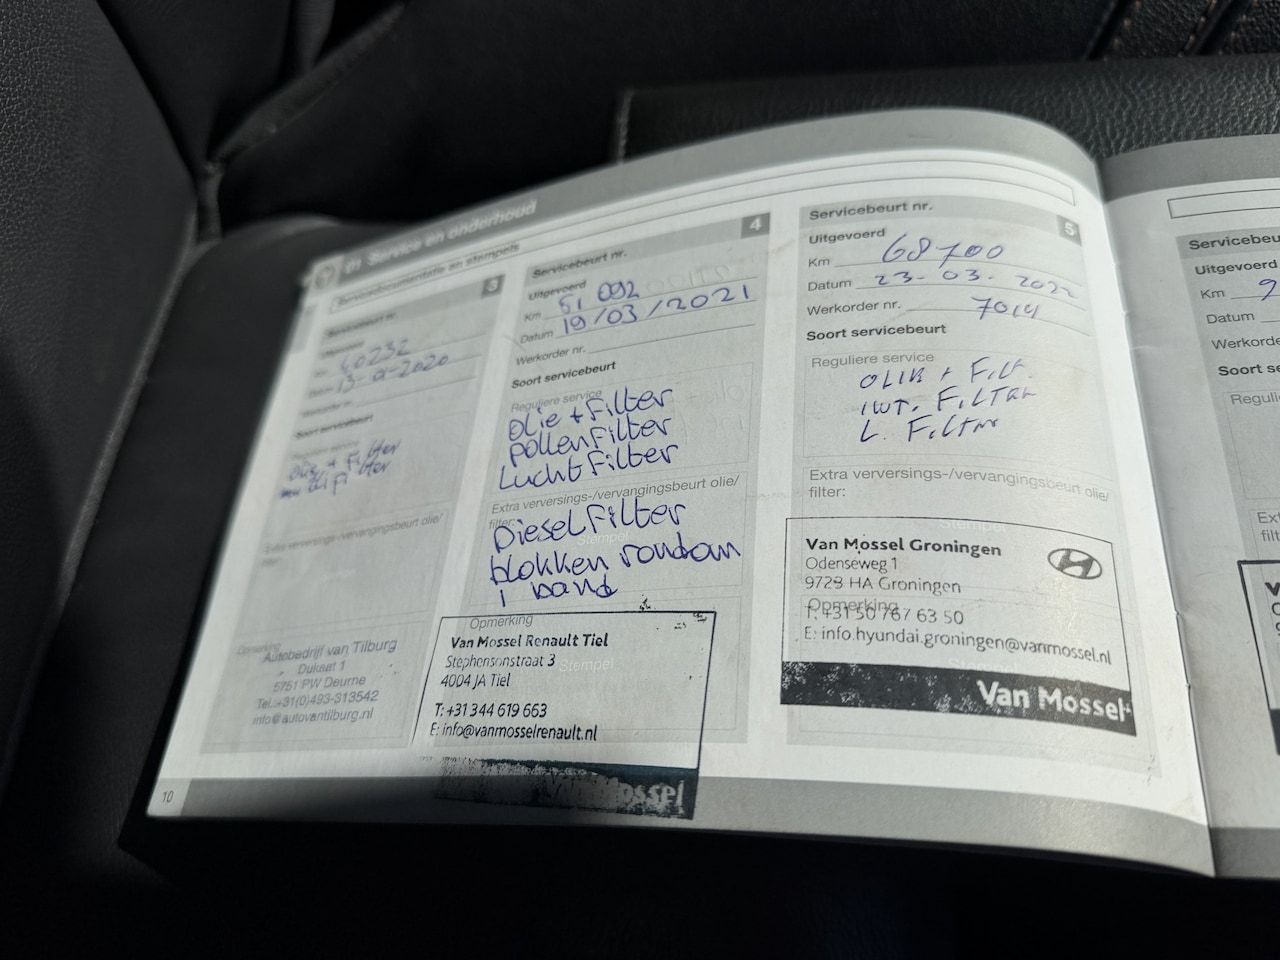 01 Service en onderhoud
Servicedocumentatie en stempels
3
Servicebeurt nr.
Uitgevoerd
40232
Datum 13-01-2020
Werkorder nr.
Soort servicebeurt
Reguliere service
olie + Filter
Extra verversings-/vervangingsbeurt olie/
filter:
Opmerking
Autobedrijf van Tilburg
Dukaat 1
5751 PW Deurne
Tel.:+31(0)493-313542
info@autovantilburg.nl
10
4
Servicebeurt nr.
Uitgevoerd
Km 51 092
Datum 19/03/2021
Werkorder nr.
Soort servicebeurt
Reguliere service
Olie + Filter
pollenFilter
LuchtFilter
Extra verversings-/vervangingsbeurt olie/
filter:
DieselFilter
Stempel
blokken rondom
1 band
Opmerking
Van Mossel Renault Tiel
Stephensonstraat 3
Stempel
4004 JA Tiel
T: +31 344 619 663
E: info@vanmosselrenault.nl
Van Mossel
5
Servicebeurt nr.
Uitgevoerd
Km 68700
Datum 23-03-2022
Werkorder nr. 7014
Soort servicebeurt
Reguliere service
OLIE + FILT.
INT. FILTER
L. FILTER
Extra verversings-/vervangingsbeurt olie/
filter:
Stempel
Van Mossel Groningen
Odenseweg 1
9723 HA Groningen
Opmerking
T: +31 50 767 63 50
E: info.hyundai.groningen@vanmossel.nl
Stempel
Van Mossel
Uitgevoerd
Km 9
Datum